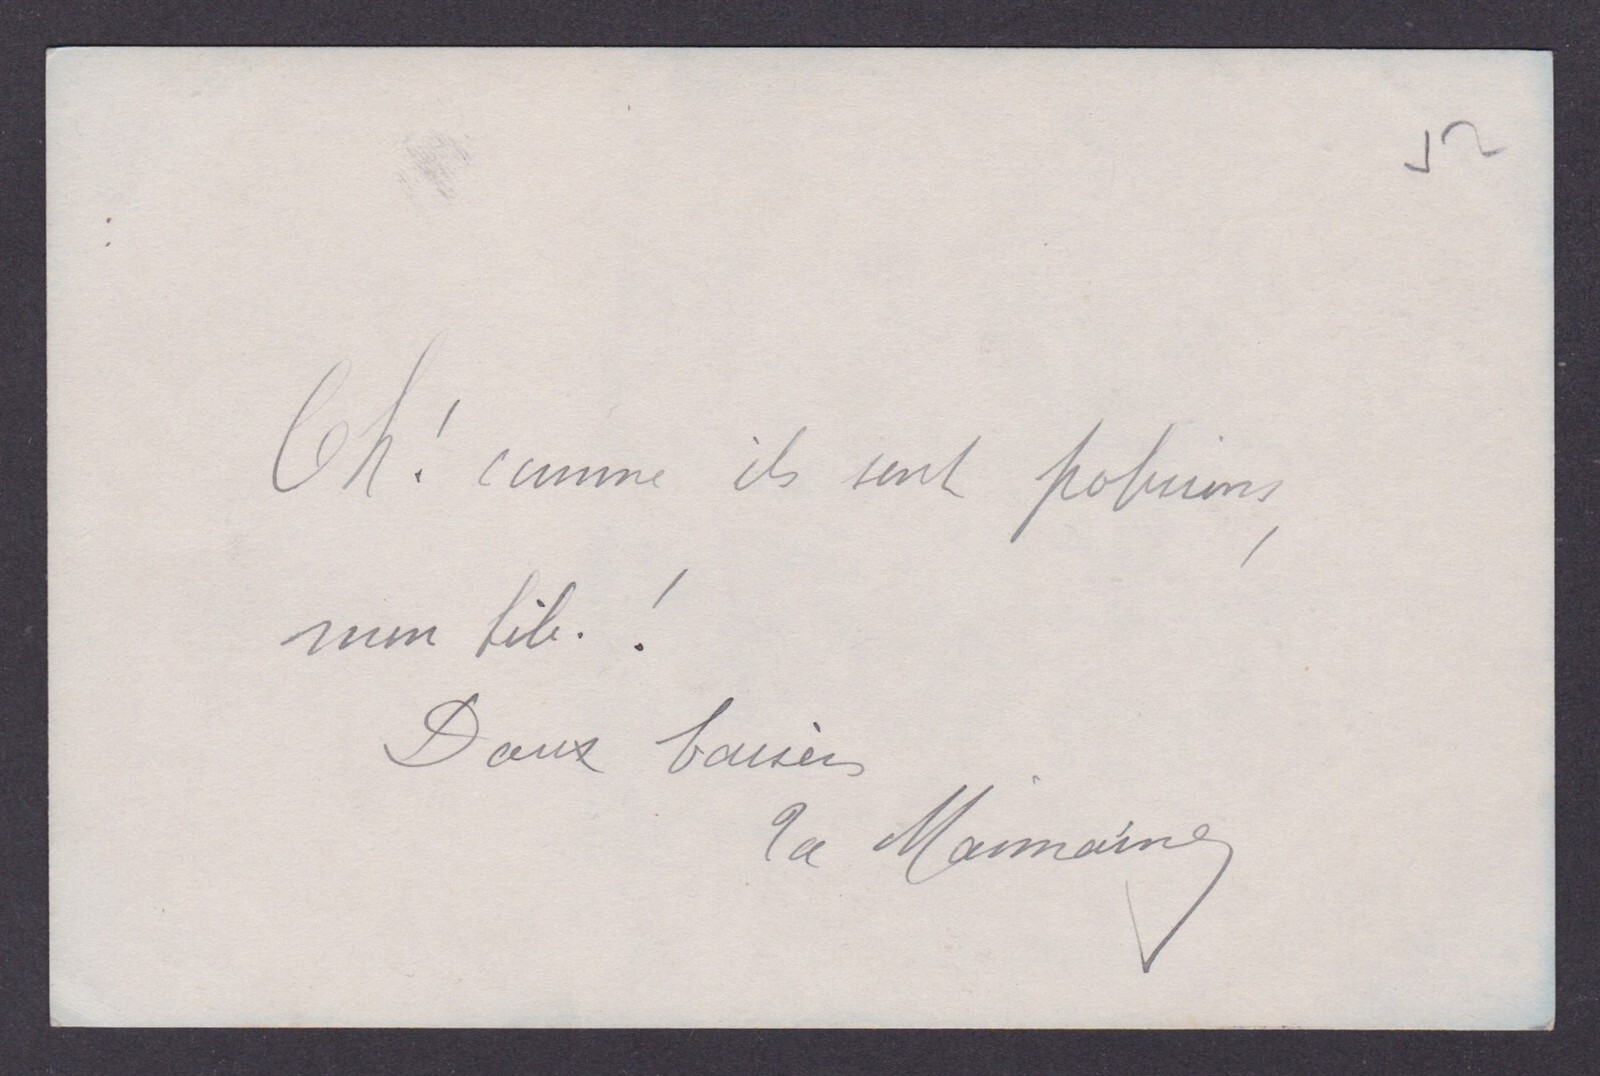 52
Oh! comme ils sont polissons,
mon bib.!
Doux baisers
Ta Mainaine